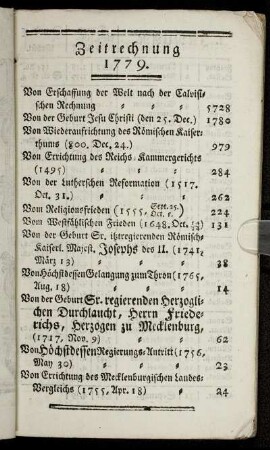 Zeitrechnung
1779.
Von Erschaffung der Welt nach der Calvisi-
schen Rechnung 5728
Von der Geburt Jesu Christi (den 25. Dec.) 1780
Von Wiederaufrichtung des Römischen Kaiser-
thums (800, Dec. 24.) 979
Von Errichtung des Reichs-Kammergerichts
(1495) 284
Von der Lutherschen Reformation (1517.
Oct. 31.) 262
Vom Religionsfrieden (1555, Sept. 25. Oct. 5.) 224
Vom Westfählischen Frieden (1648, Oct. 14/24) 131
Von der Geburt Sr. itztregierenden Römisch-
Kaiserl. Majest. Josephs des II. (1741,
März 13) 38
Von Höchstdessen Gelangung zum Thron (1765,
Aug. 18) 14
Von der Geburt Sr. regierenden Herzogli-
chen Durchlaucht, Herrn Friede-
richs, Herzogen zu Mecklenburg,
(1717, Nov. 9) 62
Von Höchstdessen Regierungs-Antritt (1756,
May 30) 23
Von Errichtung des Mecklenburgischen Landes-
Vergleichs (1755, Apr. 18) 24